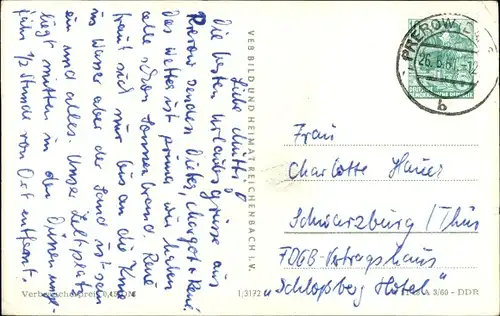 Liebe Mutti,
die besten Urlaubsgrüsse aus
Prerow senden Dieter, Margot + René.
Das Wetter ist prima wir haben
alle schon Sonnenbrand. René
traut sich nur bis an die Knie
in Wasser aber der Sand ist sein
ein und alles. Unser Zeltplatz
liegt mitten in den Dünen unge-
fähr 1/2 Stunde von Ort entfernt.
VEB BILD UND HEIMAT REICHENBACH I. V.
PREROW
26.6.6
b
DEUTSCHE
DEMOKRATISCHE REPUBLIK
Frau
Charlotte
Schwarzburg / Thür
FDGB-Vertragshaus
"Schloßberg Hotel"
Verbraucherpreis
1/3172
3/60 - DDR